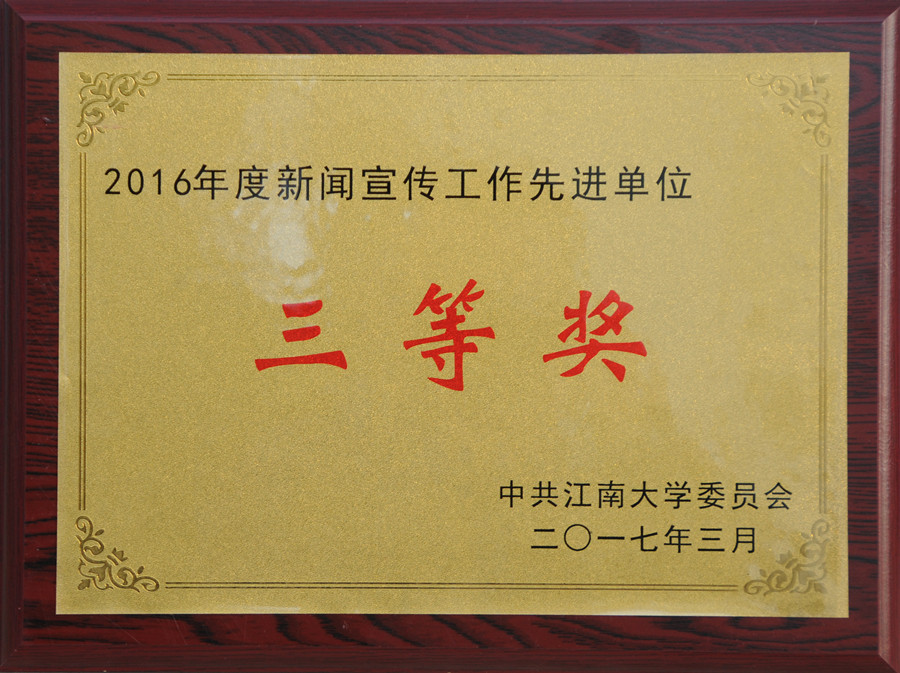 2016年度新闻宣传工作先进单位
三等奖
中共江南大学委员会
二〇一七年三月